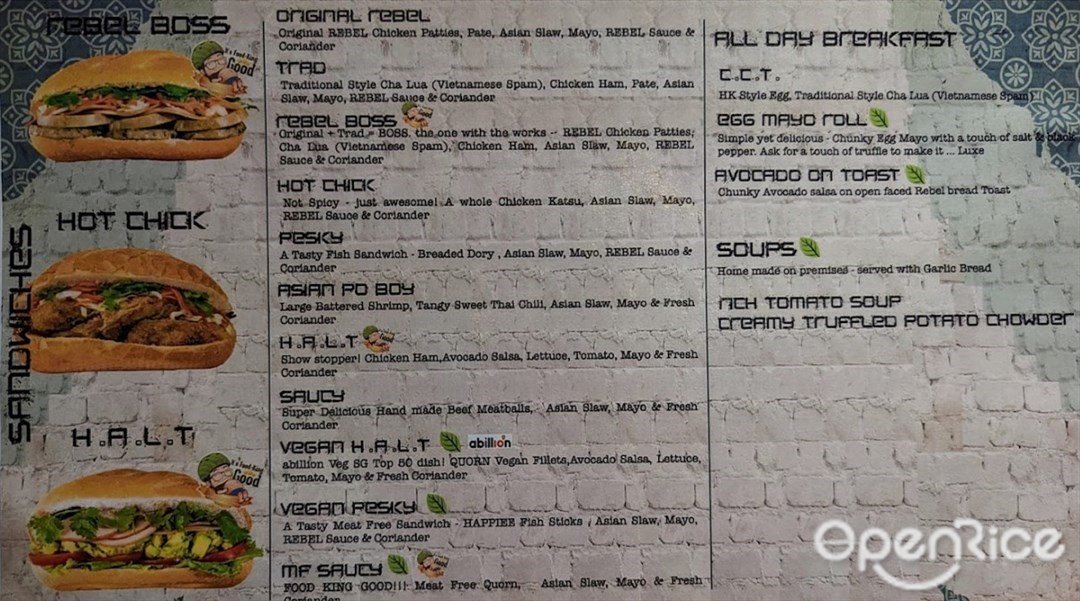 SANDWICHES
REBEL BOSS
It's Food King Good
HOT CHICK
H.A.L.T
Good
ORIGINAL REBEL
Original REBEL Chicken Patties, Pate, Asian Slaw, Mayo, REBEL Sauce &
Coriander
TRAD
Traditional Style Cha Lua (Vietnamese Spam), Chicken Ham, Pate, Asian
Slaw, Mayo, REBEL Sauce & Coriander
REBEL BOSS
Original + Trad = BOSS. the one with the works -- REBEL Chicken Patties,
Cha Lua (Vietnamese Spam), Chicken Ham, Asian Slaw, Mayo, REBEL
Sauce & Coriander
HOT CHICK
Not Spicy - just awesome! A whole Chicken Katsu, Asian Slaw, Mayo,
REBEL Sauce & Coriander
PESKY
A Tasty Fish Sandwich - Breaded Dory , Asian Slaw, Mayo, REBEL Sauce &
Coriander
ASIAN PO BOY
Large Battered Shrimp, Tangy Sweet Thai Chili, Asian Slaw, Mayo & Fresh
Coriander
H.A.L.T
Show stopper! Chicken Ham,Avocado Salsa, Lettuce, Tomato, Mayo & Fresh
Coriander
SAUCY
Super Delicious Hand made Beef Meatballs, Asian Slaw, Mayo & Fresh
Coriander
VEGAN H.A.L.T abillion
abillion Veg SG Top 50 dish! QUORN Vegan Fillets,Avocado Salsa, Lettuce,
Tomato, Mayo & Fresh Coriander
VEGAN PESKY
A Tasty Meat Free Sandwich - HAPPIEE Fish Sticks , Asian Slaw, Mayo,
REBEL Sauce & Coriander
MF SAUCY
FOOD KING GOOD!!! Meat Free Quorn, Asian Slaw, Mayo & Fresh
Coriander
ALL DAY BREAKFAST
C.C.T.
HK Style Egg, Traditional Style Cha Lua (Vietnamese Spam)
EGG MAYO ROLL
Simple yet delicious - Chunky Egg Mayo with a touch of salt & black
pepper. Ask for a touch of truffle to make it ... Luxe
AVOCADO ON TOAST
Chunky Avocado salsa on open faced Rebel bread Toast
SOUPS
Home made on premises - served with Garlic Bread
RICH TOMATO SOUP
CREAMY TRUFFLED POTATO CHOWDER
OpenRice